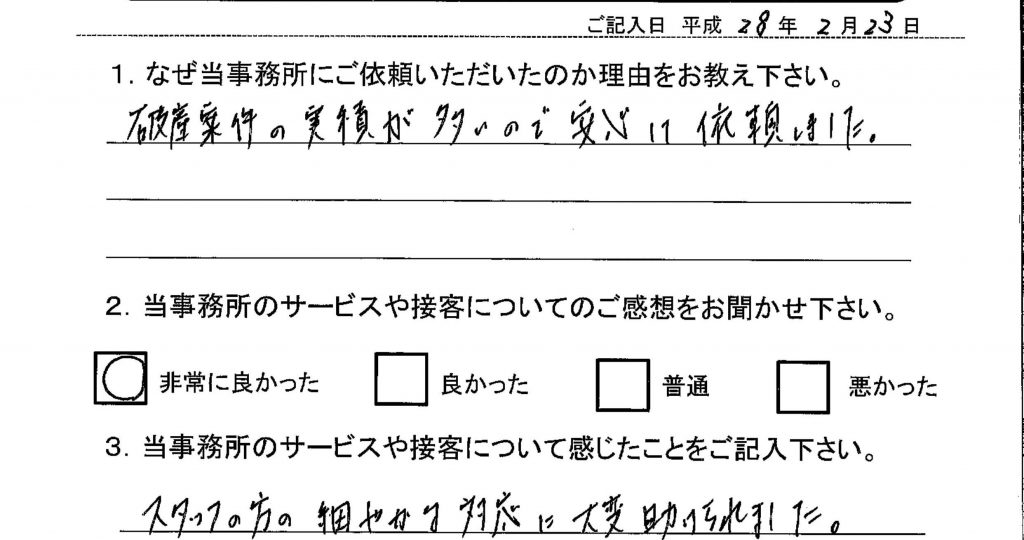 ご記入日 平成 28 年 2 月 23 日
1. なぜ当事務所にご依頼いただいたのか理由をお教え下さい。
破産案件の実績が多いので安心に依頼しました。
2. 当事務所のサービスや接客についてのご感想をお聞かせ下さい。
非常に良かった 良かった 普通 悪かった
3. 当事務所のサービスや接客について感じたことをご記入下さい。
スタッフの方の細やかな対応に大変助けられました。